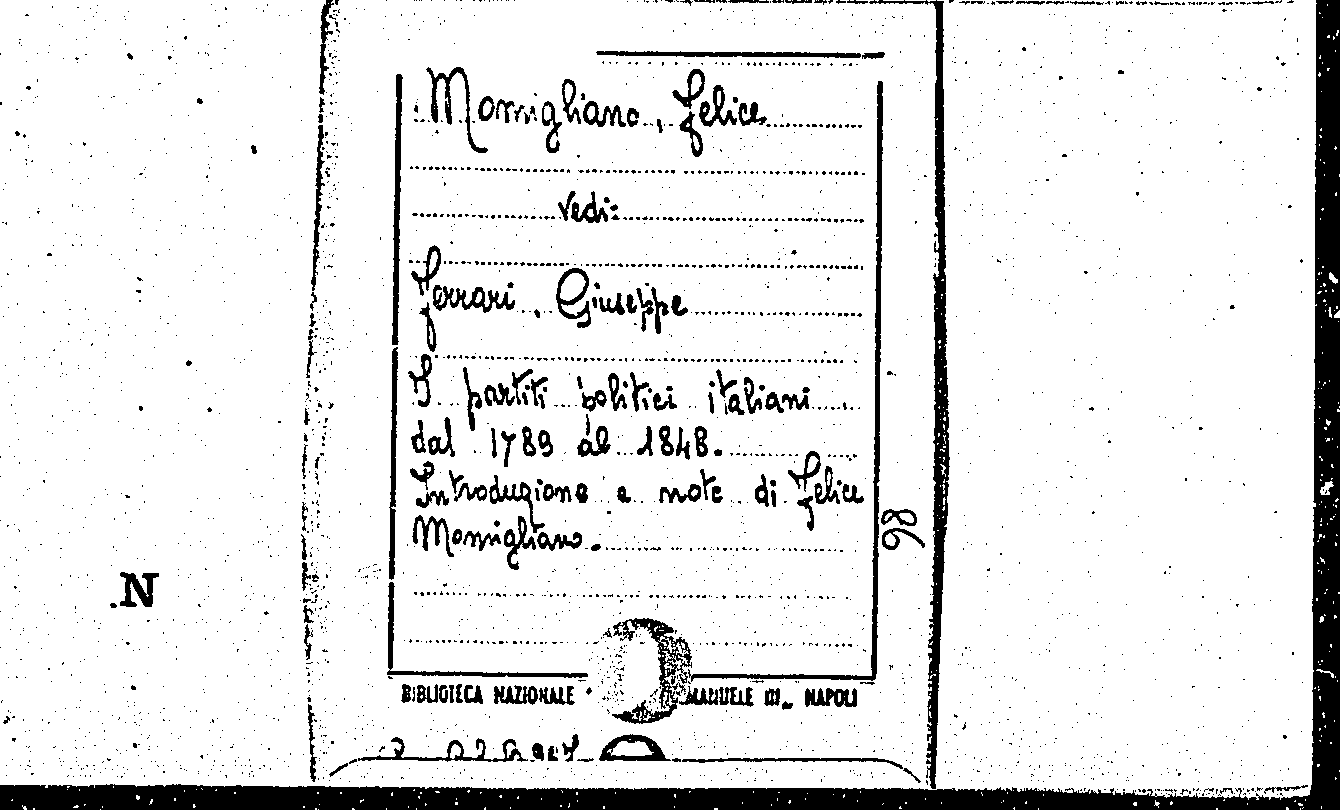 Momigliano, Felice
vedi:
Ferrari, Giuseppe
I partiti politici italiani
dal 1789 al 1848.
Introduzione e note di Felice
Momigliano.
98
N
BIBLIOTECA NAZIONALE MANUELE III„ NAPOLI